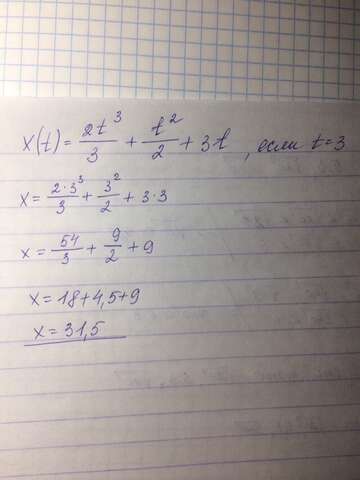 x(t) = 2t³/3 + t²/2 + 3t, если t=3
x = 2·3³/3 + 3²/2 + 3·3
x = 54/3 + 9/2 + 9
x = 18+4,5+9
x = 31,5